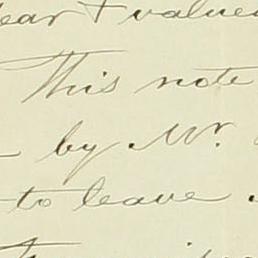 ear & value
This note
by Mr.
to leave